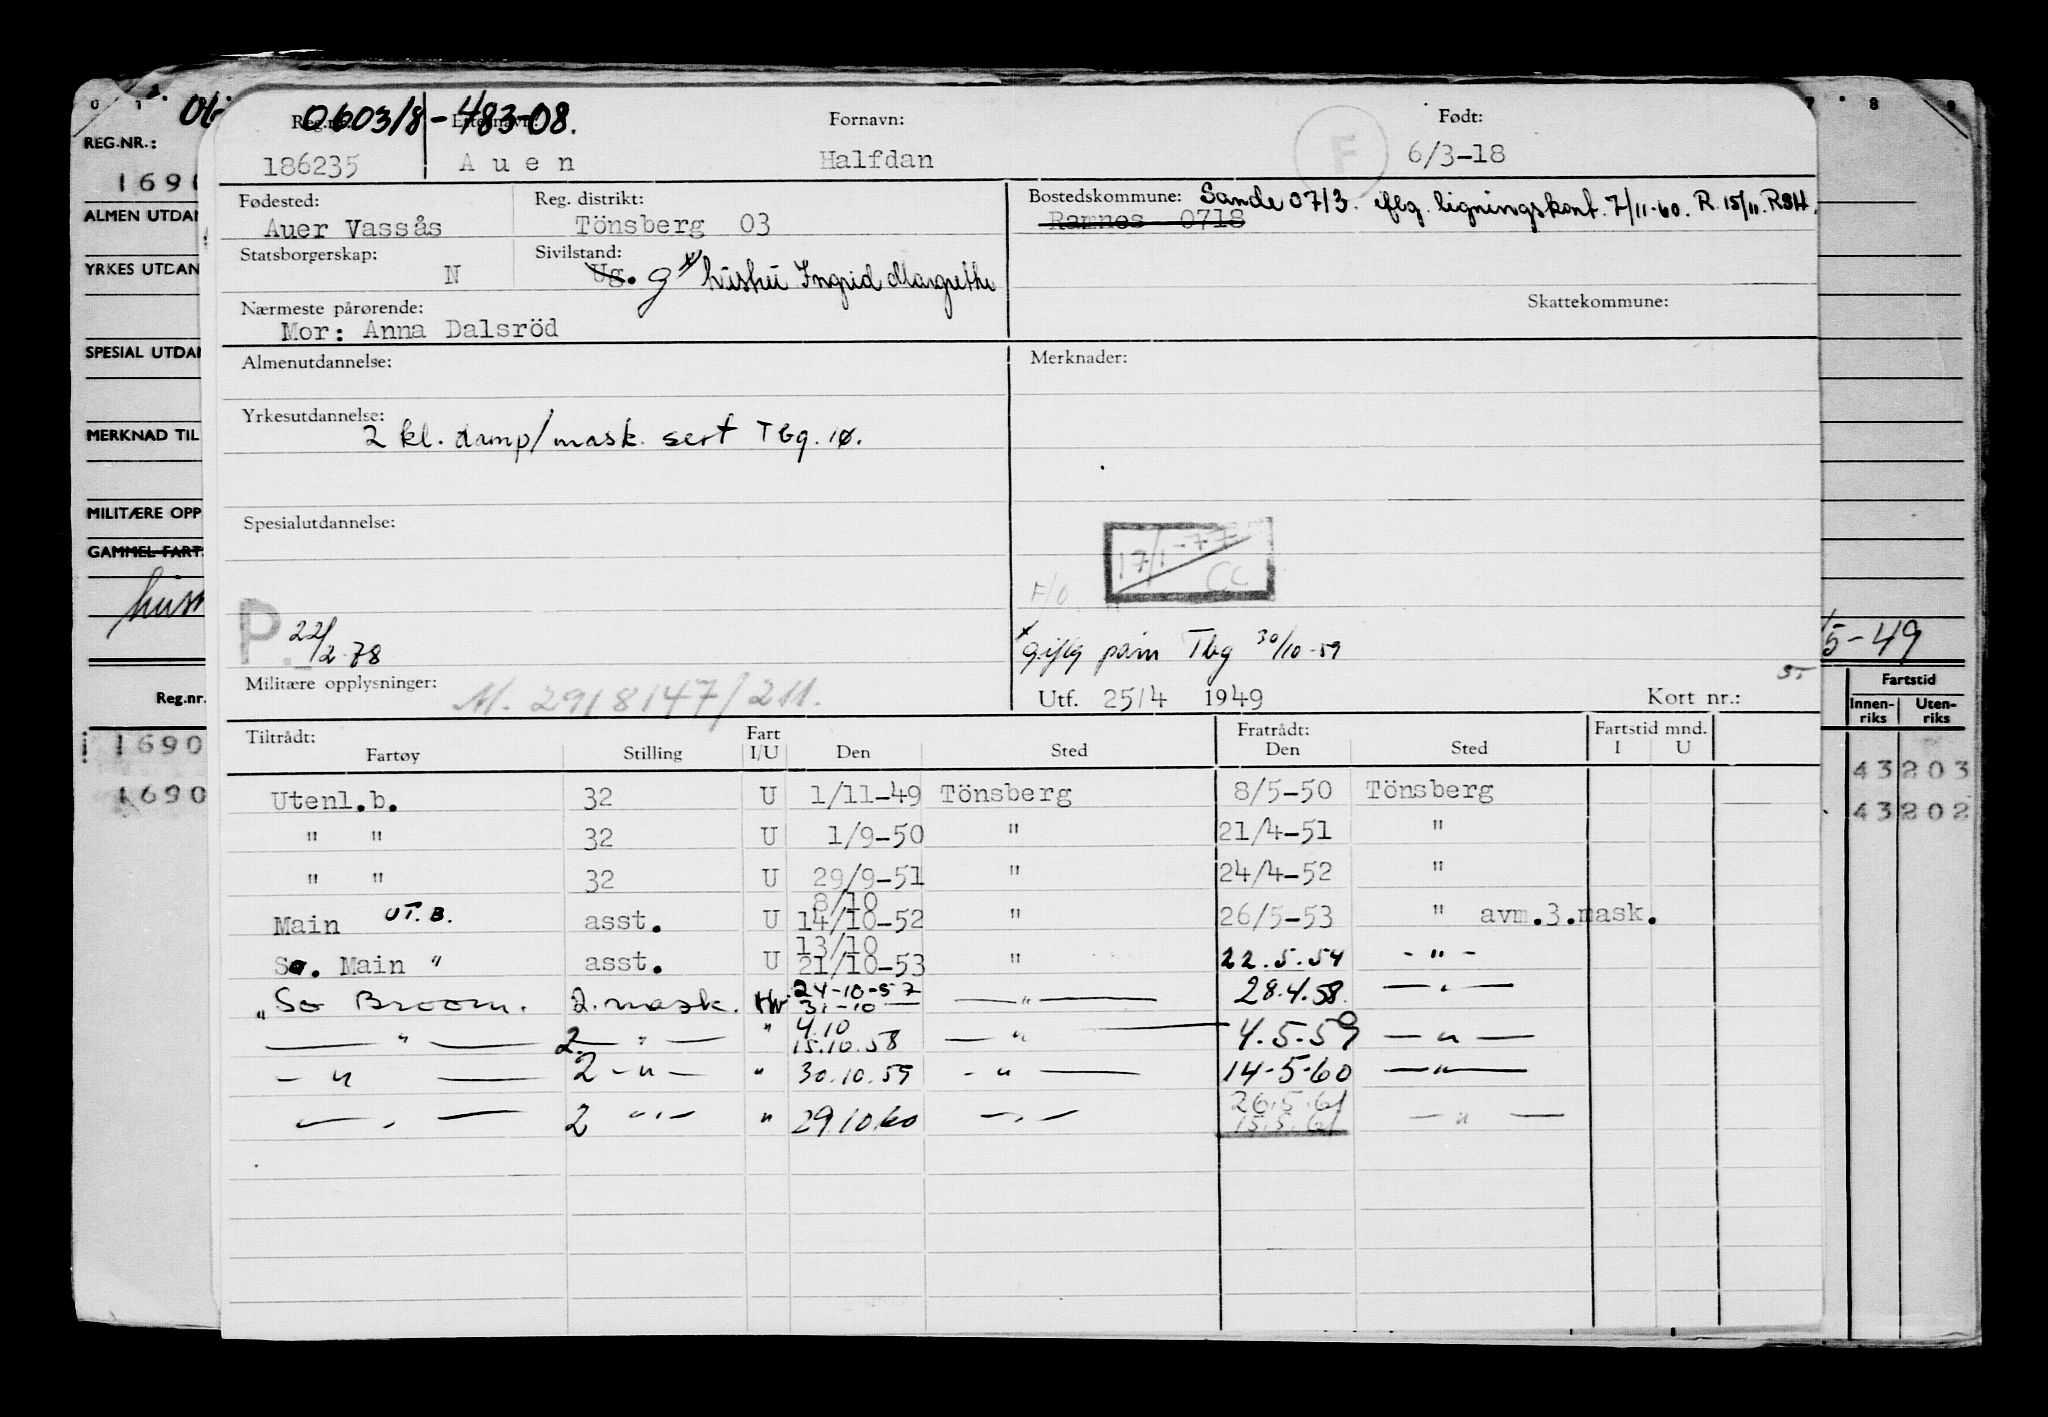 060318-483-08.
Reg.nr.: Etternavn: Fornavn: Født:
186235 Auen Halfdan 6/3-18
F
Fødested: Reg. distrikt: Bostedskommune: Sande 0713. iflg. ligningskont. 7/11-60. R. 15/11. RSH.
Auer Vassås Tönsberg 03 Ramnes 0718
Statsborgerskap: Sivilstand:
N Ug. g x hustru Ingrid Margrethe
Nærmeste pårørende: Skattekommune:
Mor: Anna Dalsröd
Almenutdannelse: Merknader:
Yrkesutdannelse:
2 kl. damp/mask. sert Tbg. 10.
Spesialutdannelse:
17/1-77
CC
F/O
P. 22/2-78
x g. iflg påm Tbg 30/10-59
Militære opplysninger: M. 2918147/211.
Utf. 25/4 1949 Kort nr.:
Tiltrådt: Fart Fratrådt: Fartstid mnd.
Fartøy Stilling I/U Den Sted Den Sted I U
Utenl.b. 32 U 1/11-49 Tönsberg 8/5-50 Tönsberg
" " 32 U 1/9-50 " 21/4-51 "
" " 32 U 29/9-51 " 24/4-52 "
Main UT.B. asst. U 8/10 14/10-52 " 26/5-53 " avm.3.mask.
So. Main " asst. U 13/10 21/10-53 " 22.5.54 - " -
" So Broom. 2. mask. Hv 24-10-57 31-10 — " — 28.4.58. — " —
— " — 2. — " — " 4.10 15.10.58 — " — 4.5.59 — " —
— " — 2 — " — " 30.10.59 - " — 14-5-60 — " —
— " — 2 — " — " 29.10.60 — " — 26.5.61 15.5.61 — " —
REG.NR.:
1690
ALMEN UTDAN
YRKES UTDAN
SPESIAL UTDAN
MERKNAD TIL
MILITÆRE OPP
GAMMEL FART
Reg.nr.
1690
1690
5-49
Fartstid
Innen-riks Uten-riks
43203
43202